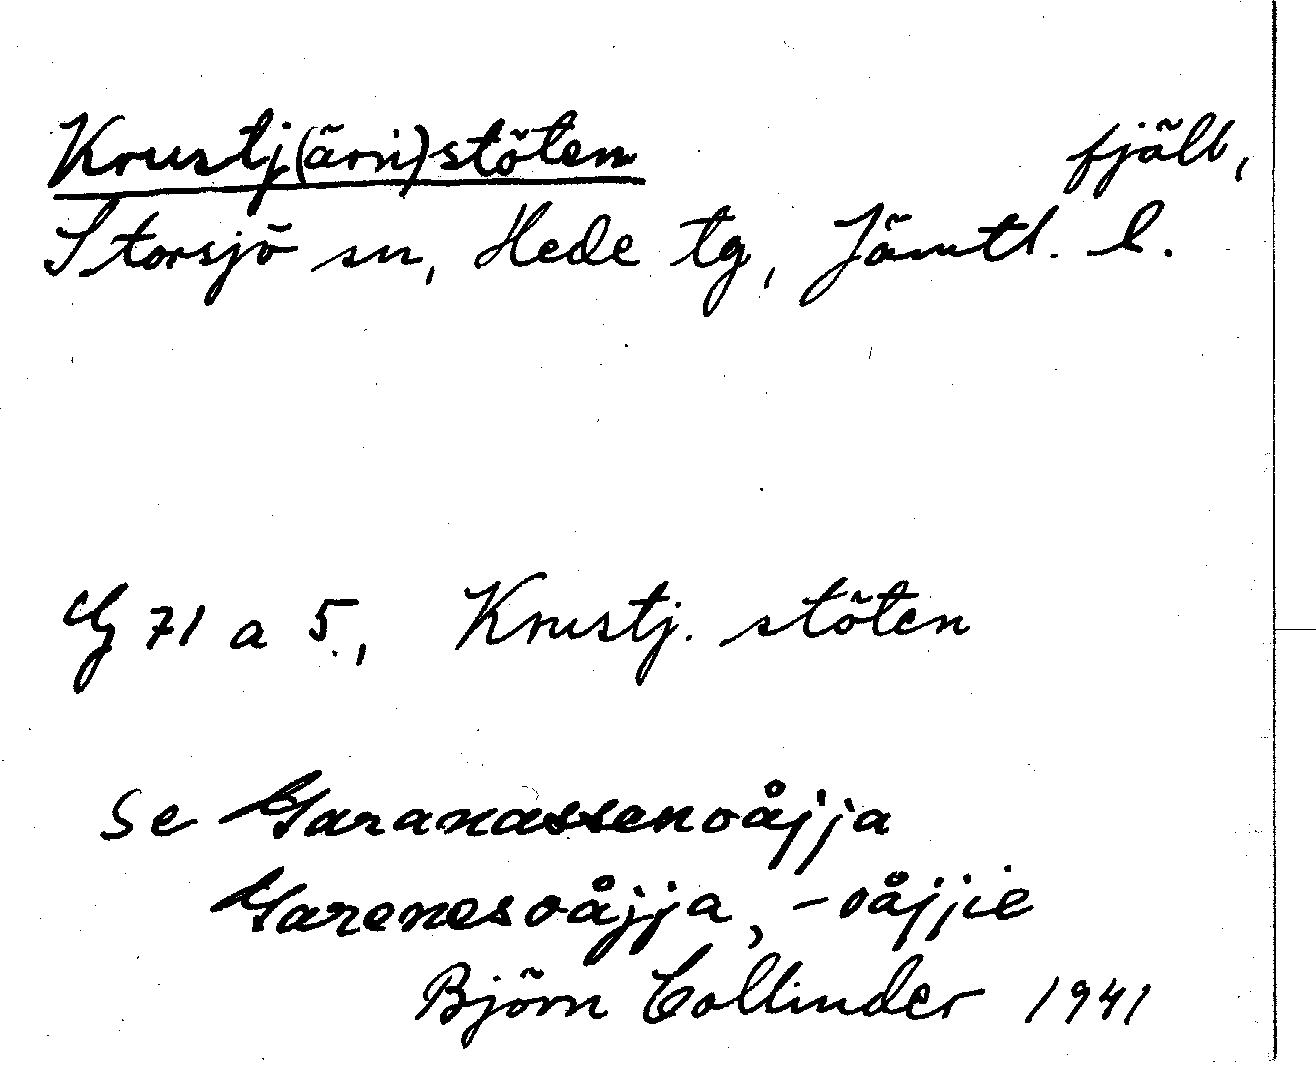 Krustj(ärn)stöten fjäll,
Storsjö sn, Hede tg, Jämtl. l.
G 71 a 5, Krustj. stöten
Se Garanassenoåjja
Garenesoåjja, -oåjjie
Björn Collinder 1941